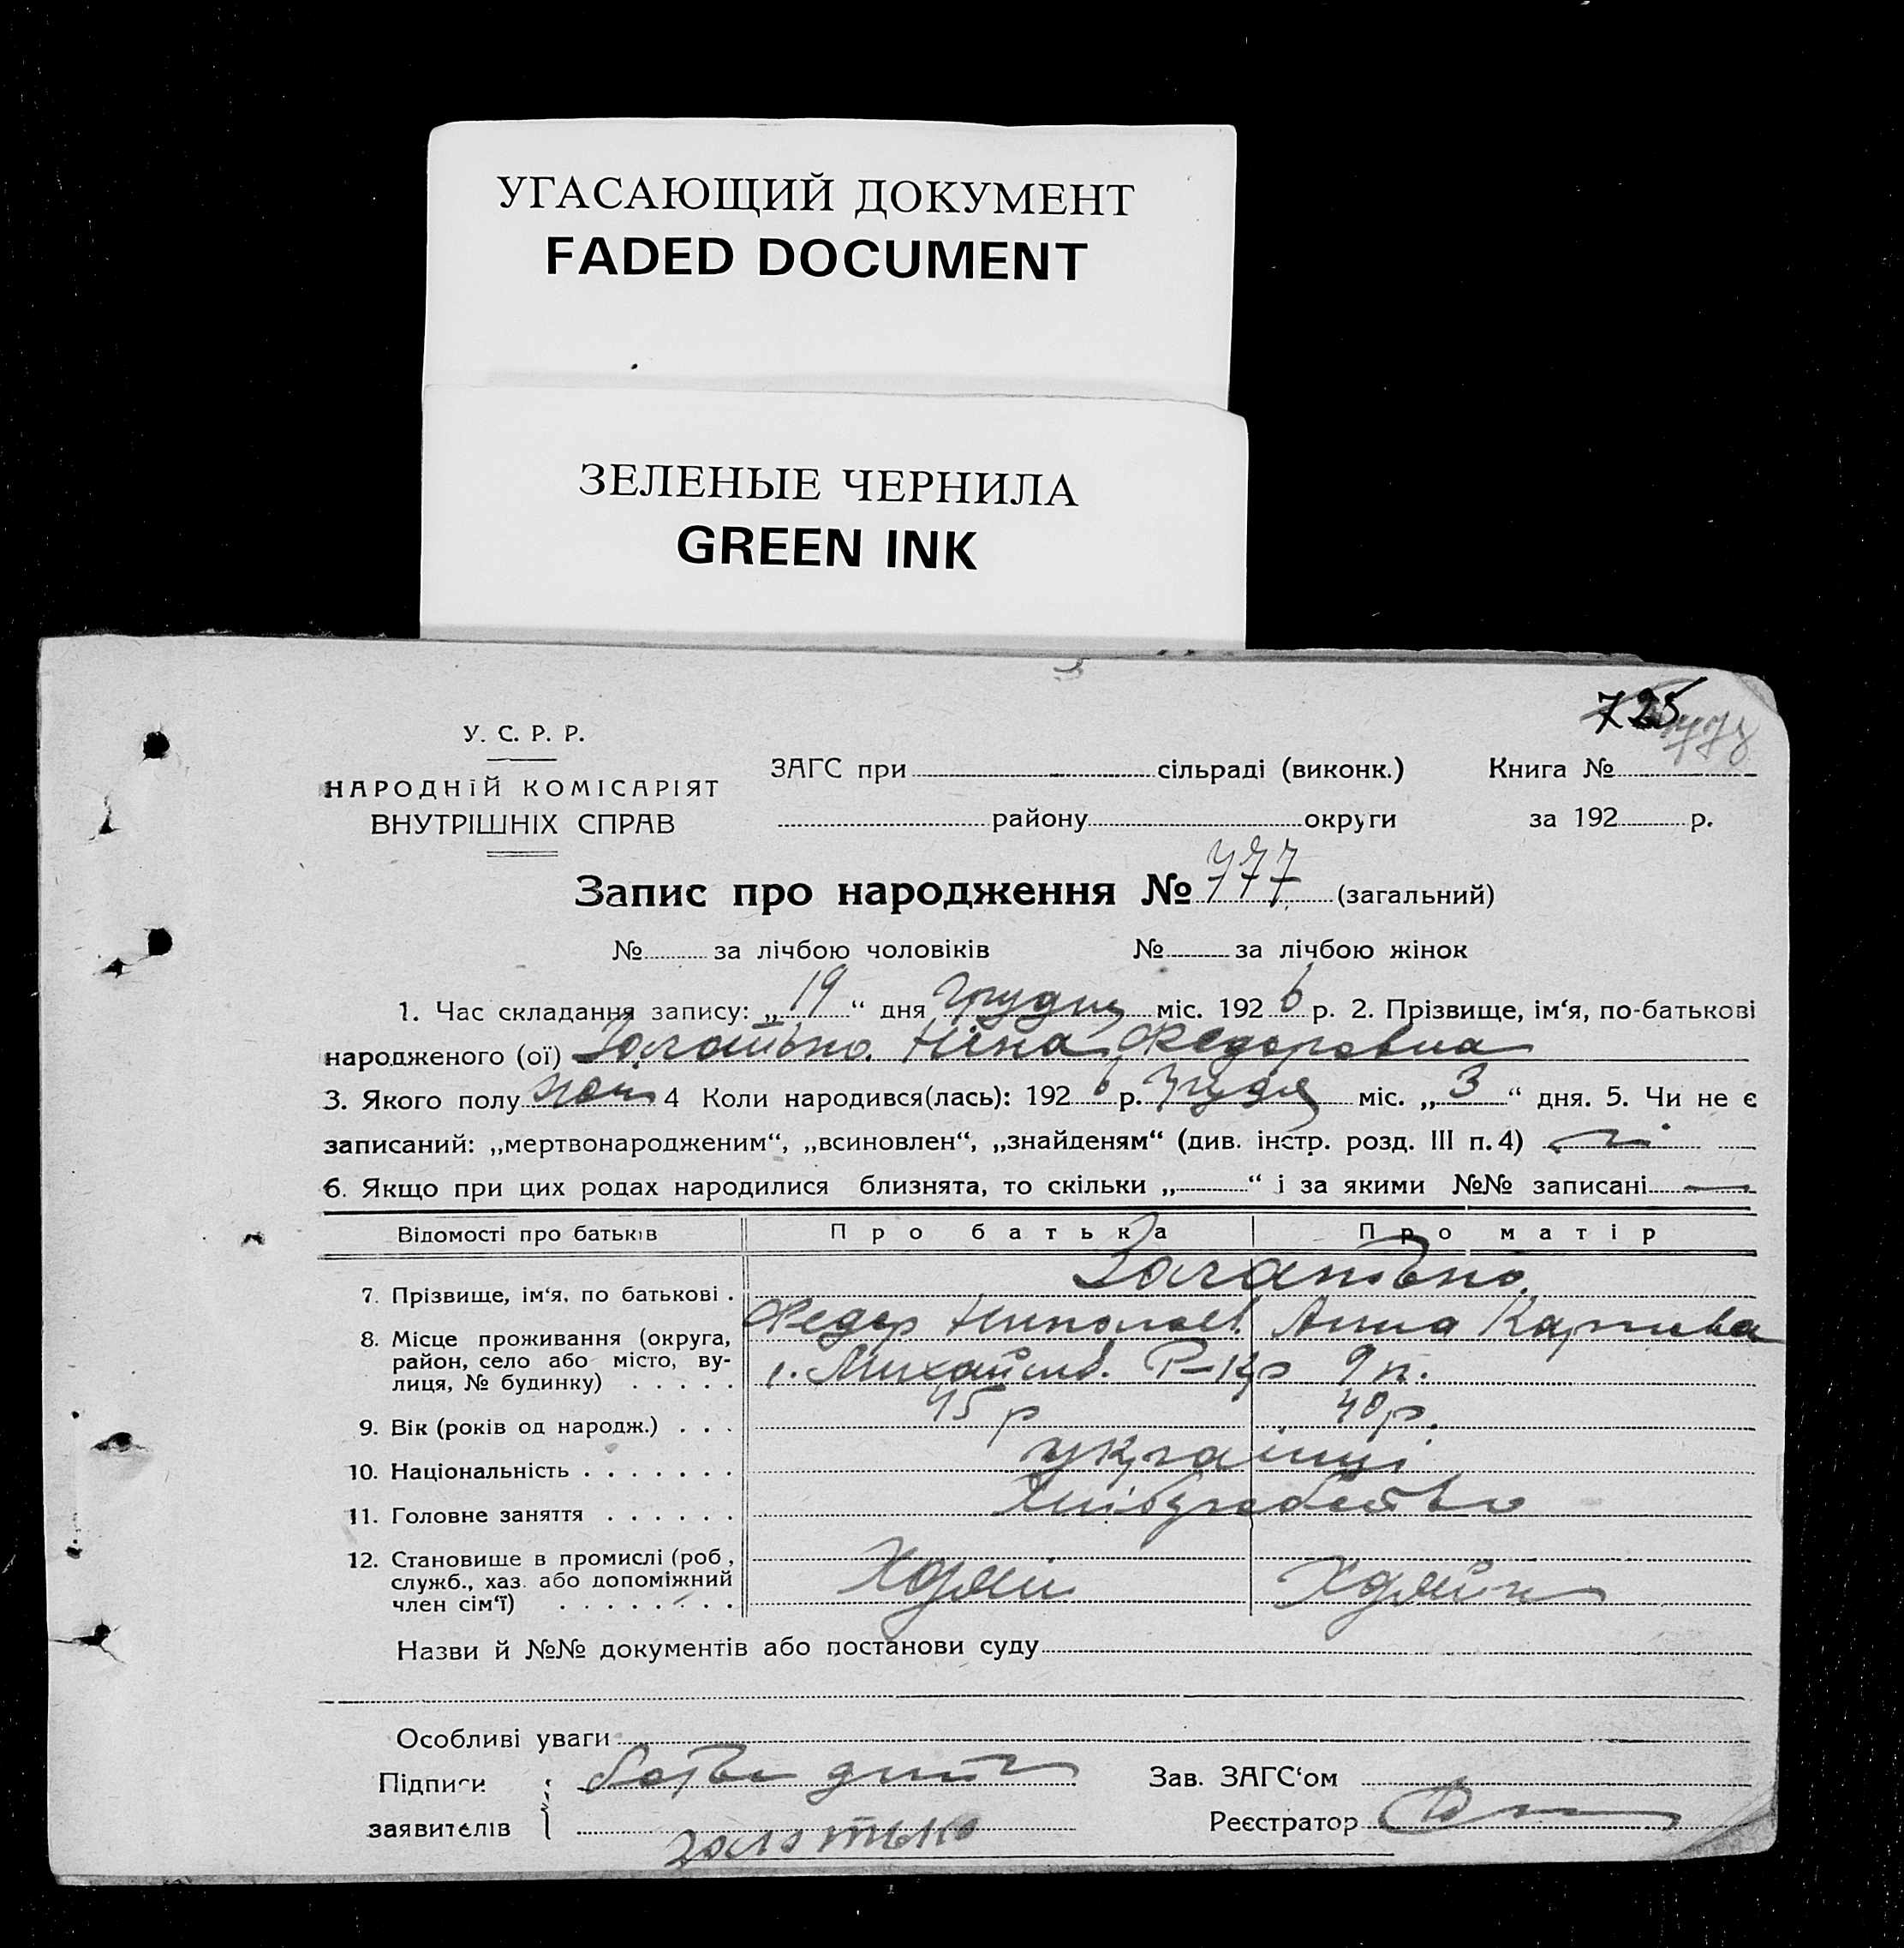 УГАСАЮЩИЙ ДОКУМЕНТ
FADED DOCUMENT
ЗЕЛЕНЫЕ ЧЕРНИЛА
GREEN INK
725
778
У. С. Р. Р.
НАРОДНІЙ КОМІСАРІЯТ
ВНУТРІШНІХ СПРАВ
ЗАГС при сільраді (виконк.) Книга №
району округи за 192 р.
Запис про народження № 777 (загальний)
№ за лічбою чоловіків № за лічбою жінок
1. Час складання запису: „19“ дня грудня міс. 1926 р. 2. Прізвище, ім‘я, по-батькові
народженого (ої) Нина Федоровна
3. Якого полу жін 4 Коли народився(лась): 1926 р. грудня міс. „3“ дня. 5. Чи не є
записаний: „мертвонародженим“, „всиновлен“, „знайденям“ (див. інстр. розд. III п. 4) ні
6. Якщо при цих родах народилися близнята, то скільки „—“ і за якими №№ записані —
Відомості про батьків Про батька Про матір
7. Прізвище, ім‘я, по батькові .
Федор Николаев Анна Карпивна
8. Місце проживання (округа,
район, село або місто, ву-
лиця, № будинку) . . . . . 9
9. Вік (років од народж.) . . . 45 р 40 р.
10. Національність . . . . . . . українці
11. Головне заняття . . . . . . Хліборобство
12. Становище в промислі (роб.,
служб., хаз. або допоміжний
член сім‘ї) . . . . . . . .
Назви й №№ документів або постанови суду
Особливі уваги
Підписи Зав. ЗАГС‘ом
заявителів Реєстратор
золотько